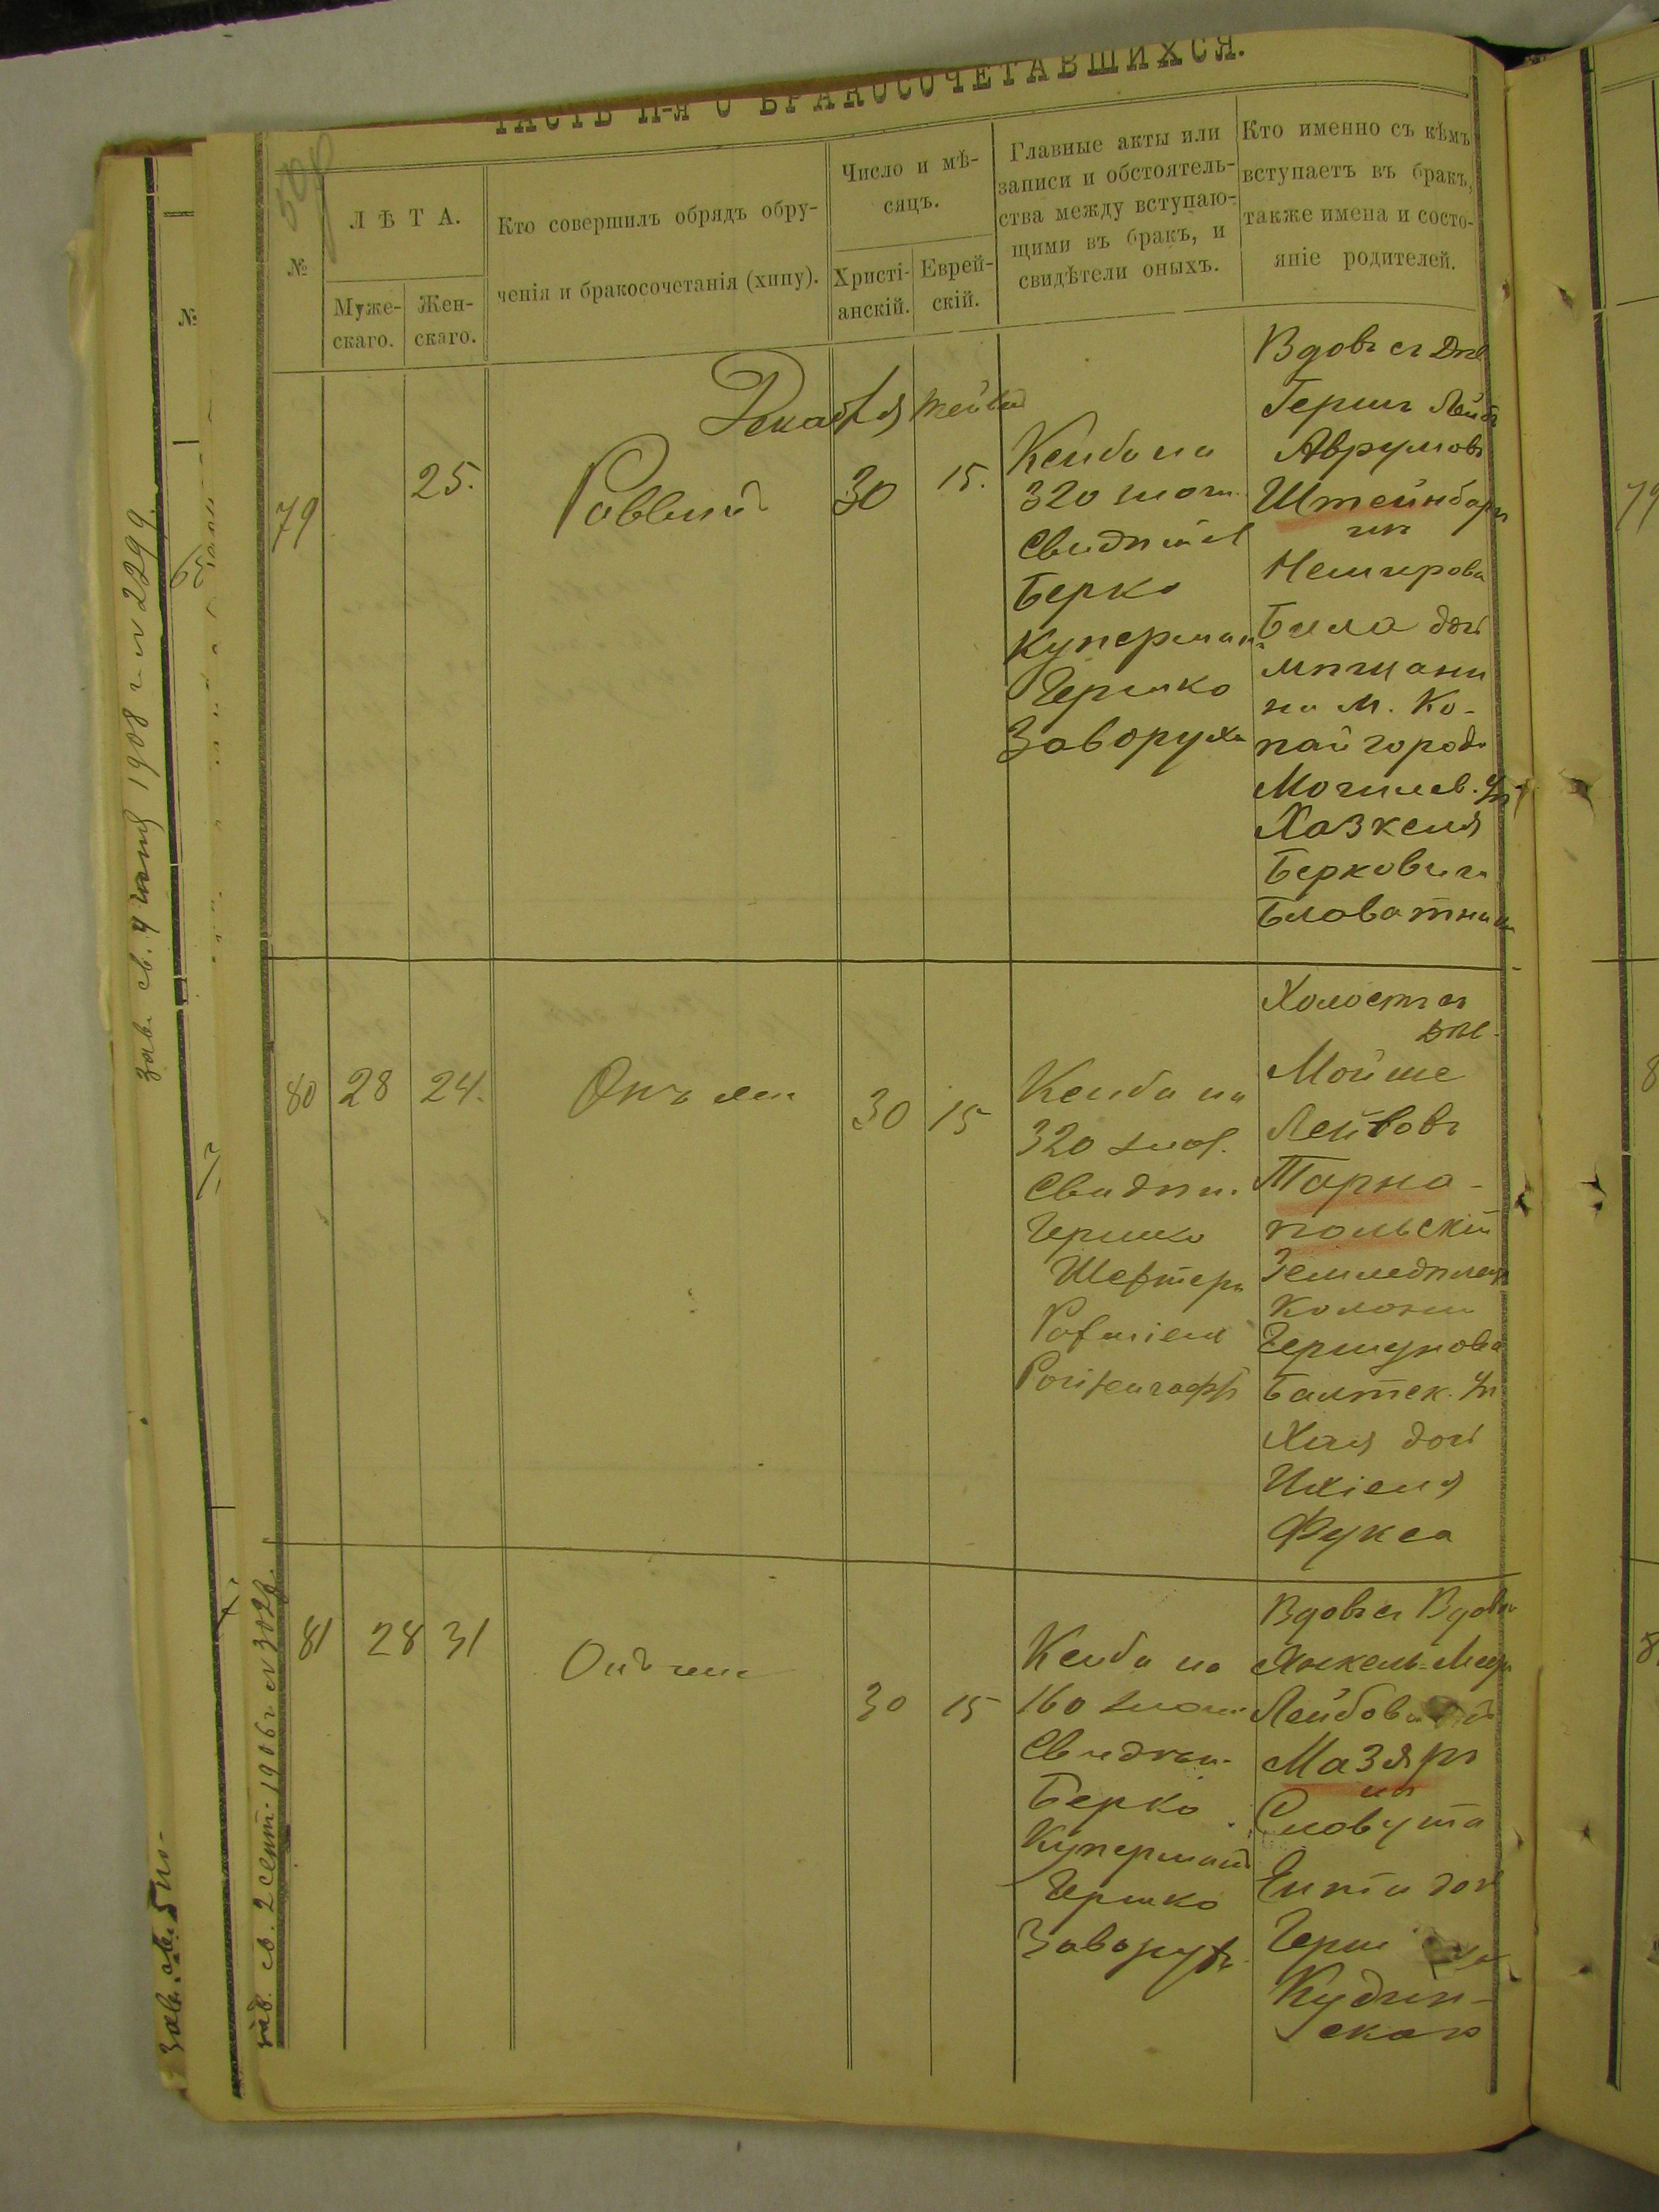 ЧАСТЬ II-я О БРАКОСОЧЕТАВШИХСЯ.
№
ЛѢТА.
Муже-
скаго.
Жен-
скаго.
Кто совершилъ обрядъ обру-
ченія и бракосочетанія (хипу).
Число и мѣ-
сяцъ.
Христі-
анскій.
Еврей-
скій.
Главные акты или
записи и обстоятель-
ства между вступаю-
щими въ бракъ, и
свидѣтели оныхъ.
Кто именно съ кѣмъ
вступаетъ въ бракъ,
также имена и состо-
яніе родителей.
Декабря
79
25.
Раввинъ
30
15.
Ксиба на
320 злот.
Свидѣтел
Берко
Куперман
Гершко
Заворуха
Вдовъ съ Дѣв
Гершъ Лейб
Аврумовъ
Штейнбарг
изъ
Немирова
Бейла дочь
мѣщани
на М. Ко-
пайгорода
Могилев. уѣ
Хазкеля
Берковича
Блаватника
80
28
24.
Онъ же
30
15
Ксиба на
320 злот.
Свидѣт.
Гершко
Шефтеръ
Холостъ съ
дѣв.
Мойше
Лейбовъ
Тарно-
польскій
Земледѣлец
Колоніи
Гершуновка
Балтск. уѣ
Хая дочь
Ихіеля
Фукса
81
28
31
Онъ же
30
15
Ксиба на
160 злот.
Свидѣт.
Берко
Куперманъ
Гершко
Заворуха
Вдовъ съ Вдов
Янкель-Меер
Лейбов
Мазяръ
изъ
Славута
Ента доч
Герш
Кудин-
скаго
зав. св. 2 сент. 1906 г. № 3028.
зав. св. 9 1908 г. № 2299.
зав. св. 5
№
79